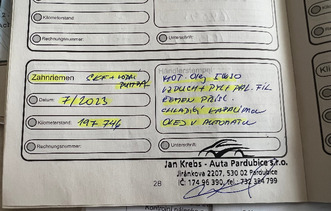 Kilometerstand:
Rechnungsnummer:
Unterschrift:
Zahnriemen SKF + VODNÍ
PUMPA
Datum: 7/2023
Kilometerstand: 197 746
Rechnungsnummer:
Händlerstempel
MOT. OLEJ
VZDUCH + PYL
FIL.
ŘEMEN PŘÍSL.
CHLADÍCÍ KAPALINA
OLEJ V AUTOMATU
Unterschrift:
Jan Krebs - Auta Pardubice s.r.o.
Jiránkova 2207, 530 02 Pardubice
IČ: 174 96 390, tel.: 732 384 799
28